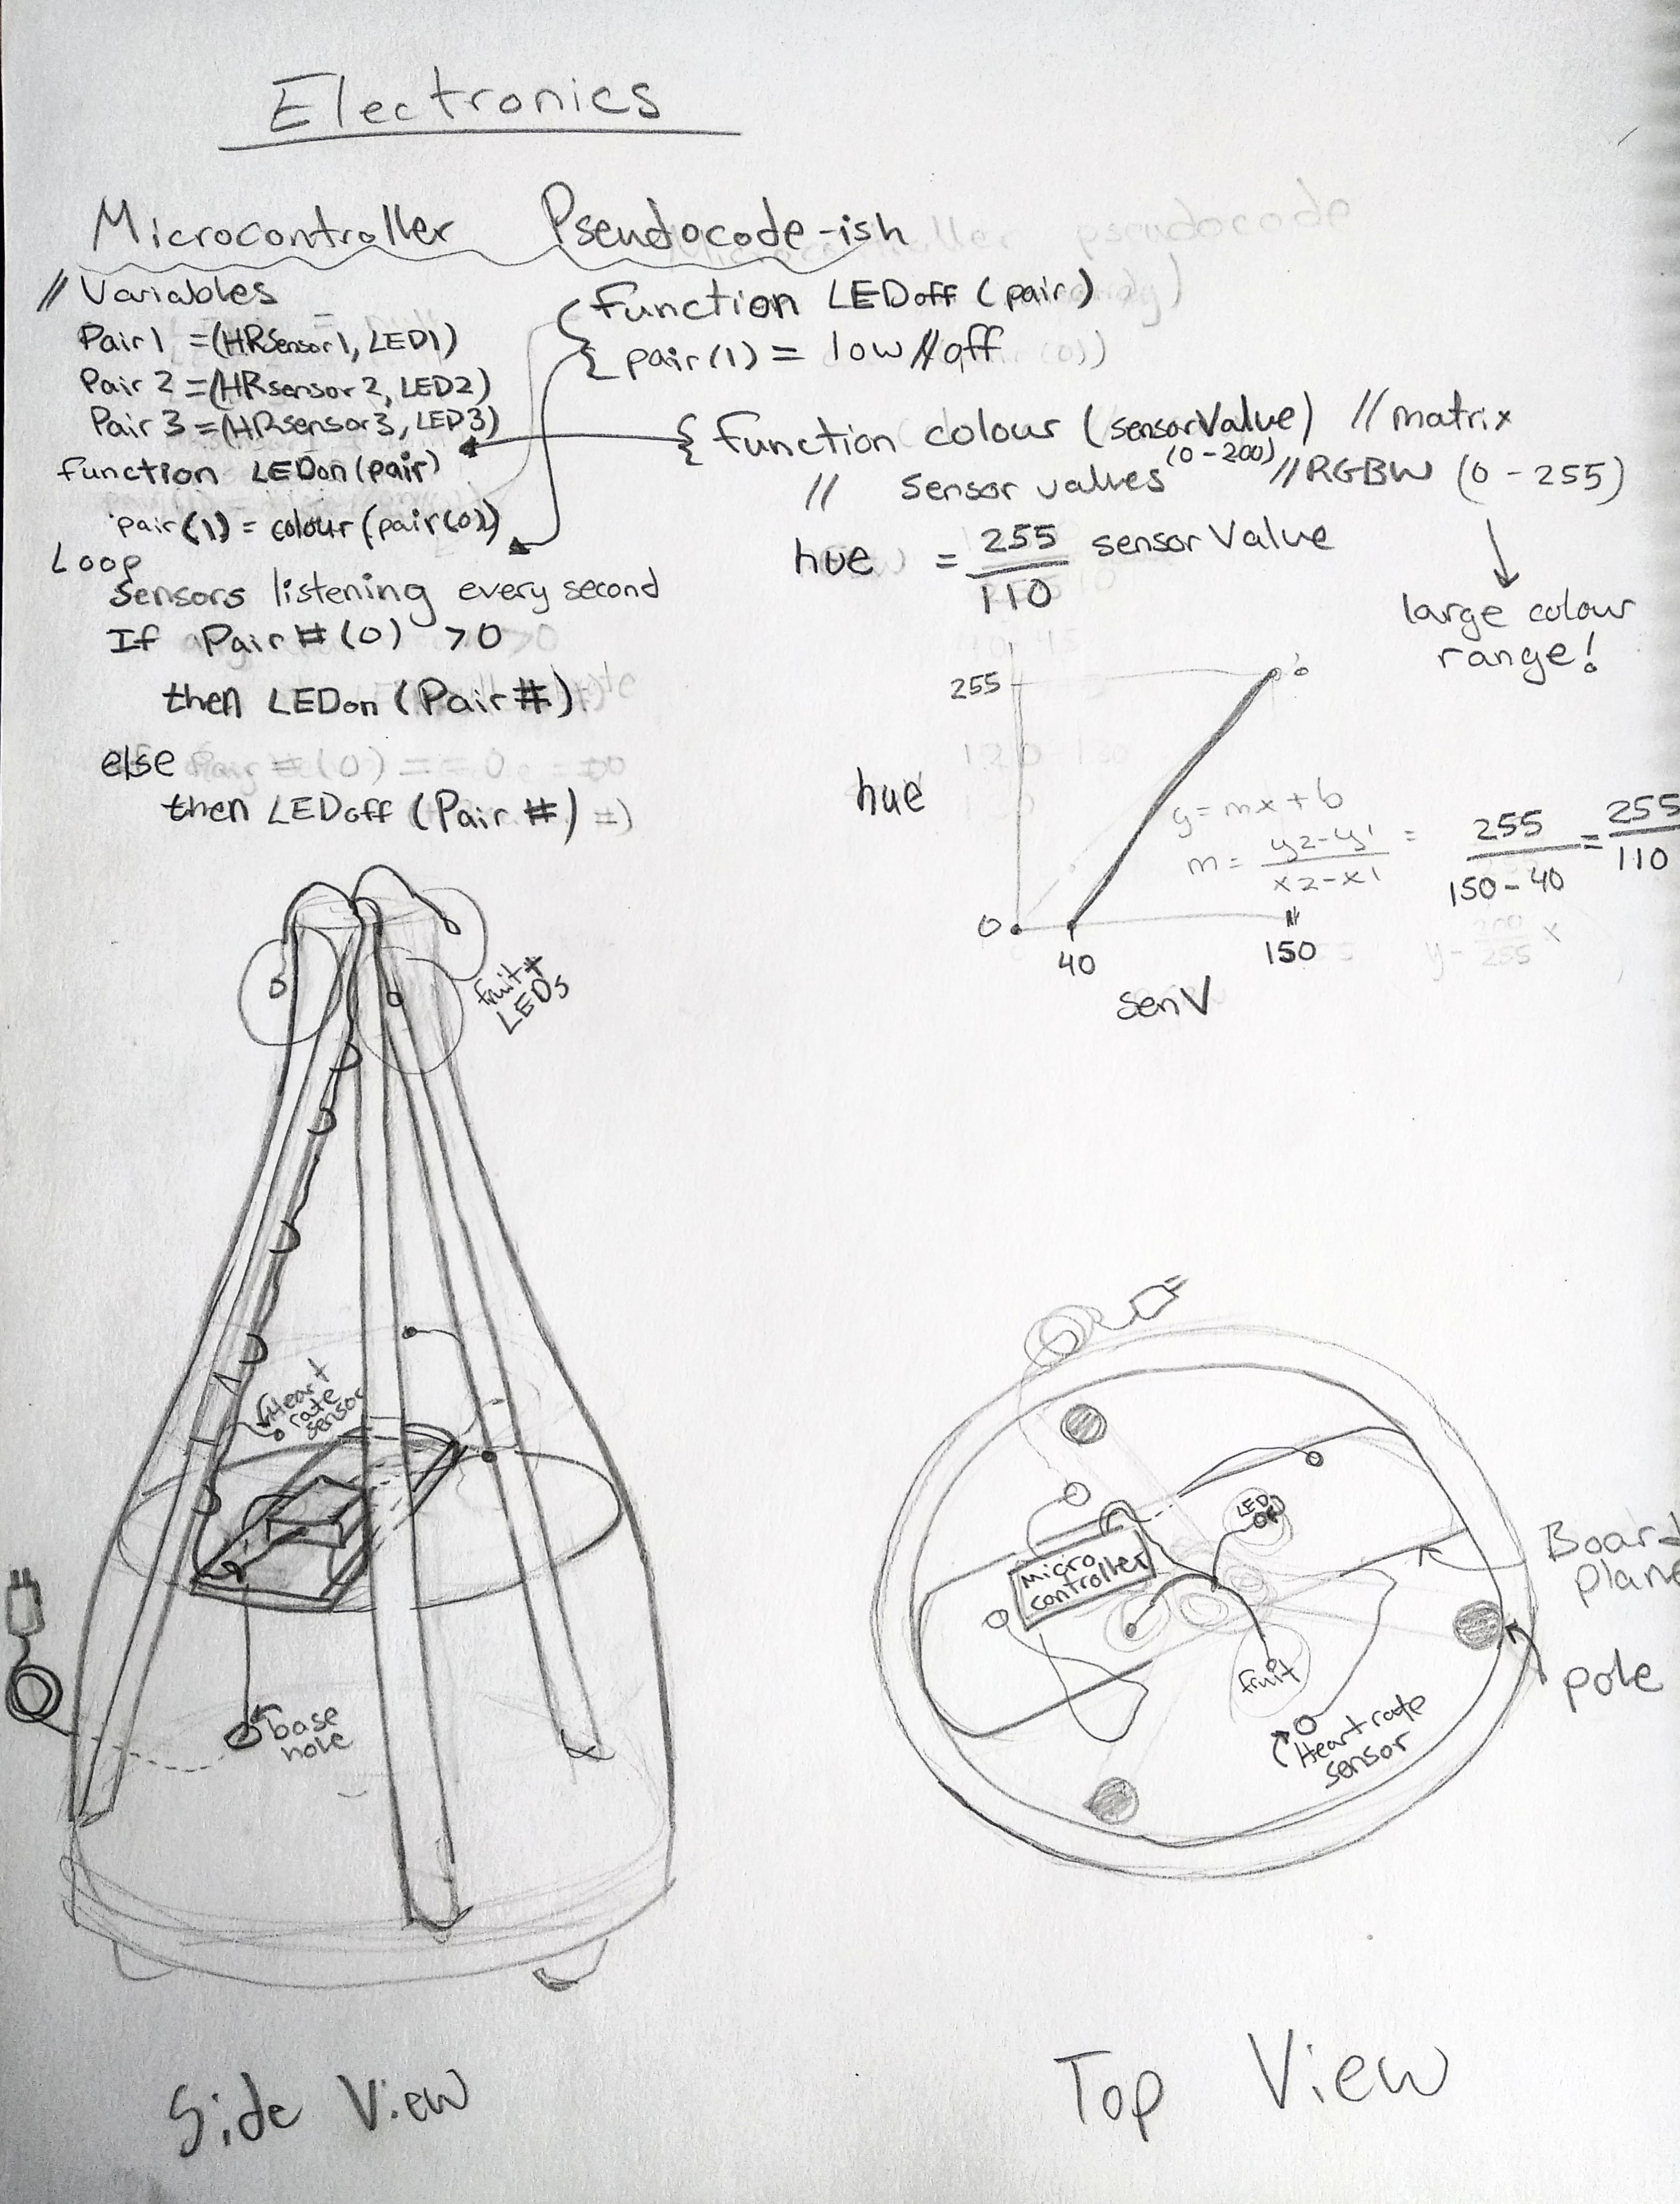 Electronics
Microcontroller Pseudocode-ish
// Variables
Pair 1 =(HRSensor1, LED1)
Pair 2 =(HRsensor2, LED2)
Pair 3 =(HRsensor3, LED3)
function LEDon(pair)
pair(1) = colour(pair(0))
Loop
Sensors listening every second
If Pair#(0) >0
then LEDon (Pair#)
else
then LEDoff (Pair#)
{ function LEDoff (pair)
{ pair(1) = low //off
{ function colour (sensorValue) //matrix
// sensor values (0-200) //RGBW (0-255)
large colour
range!
hue = 255/110 sensorValue
255
hue
0
40
150
senV
y=mx+b
m = y2-y1 / x2-x1 = 255 / 150-40 = 255 / 110
fruit +
LEDs
Heart
rate
sensor
base
hole
Side View
LED
Micro
controller
fruit
Heart rate
sensor
Board
plane
pole
Top View